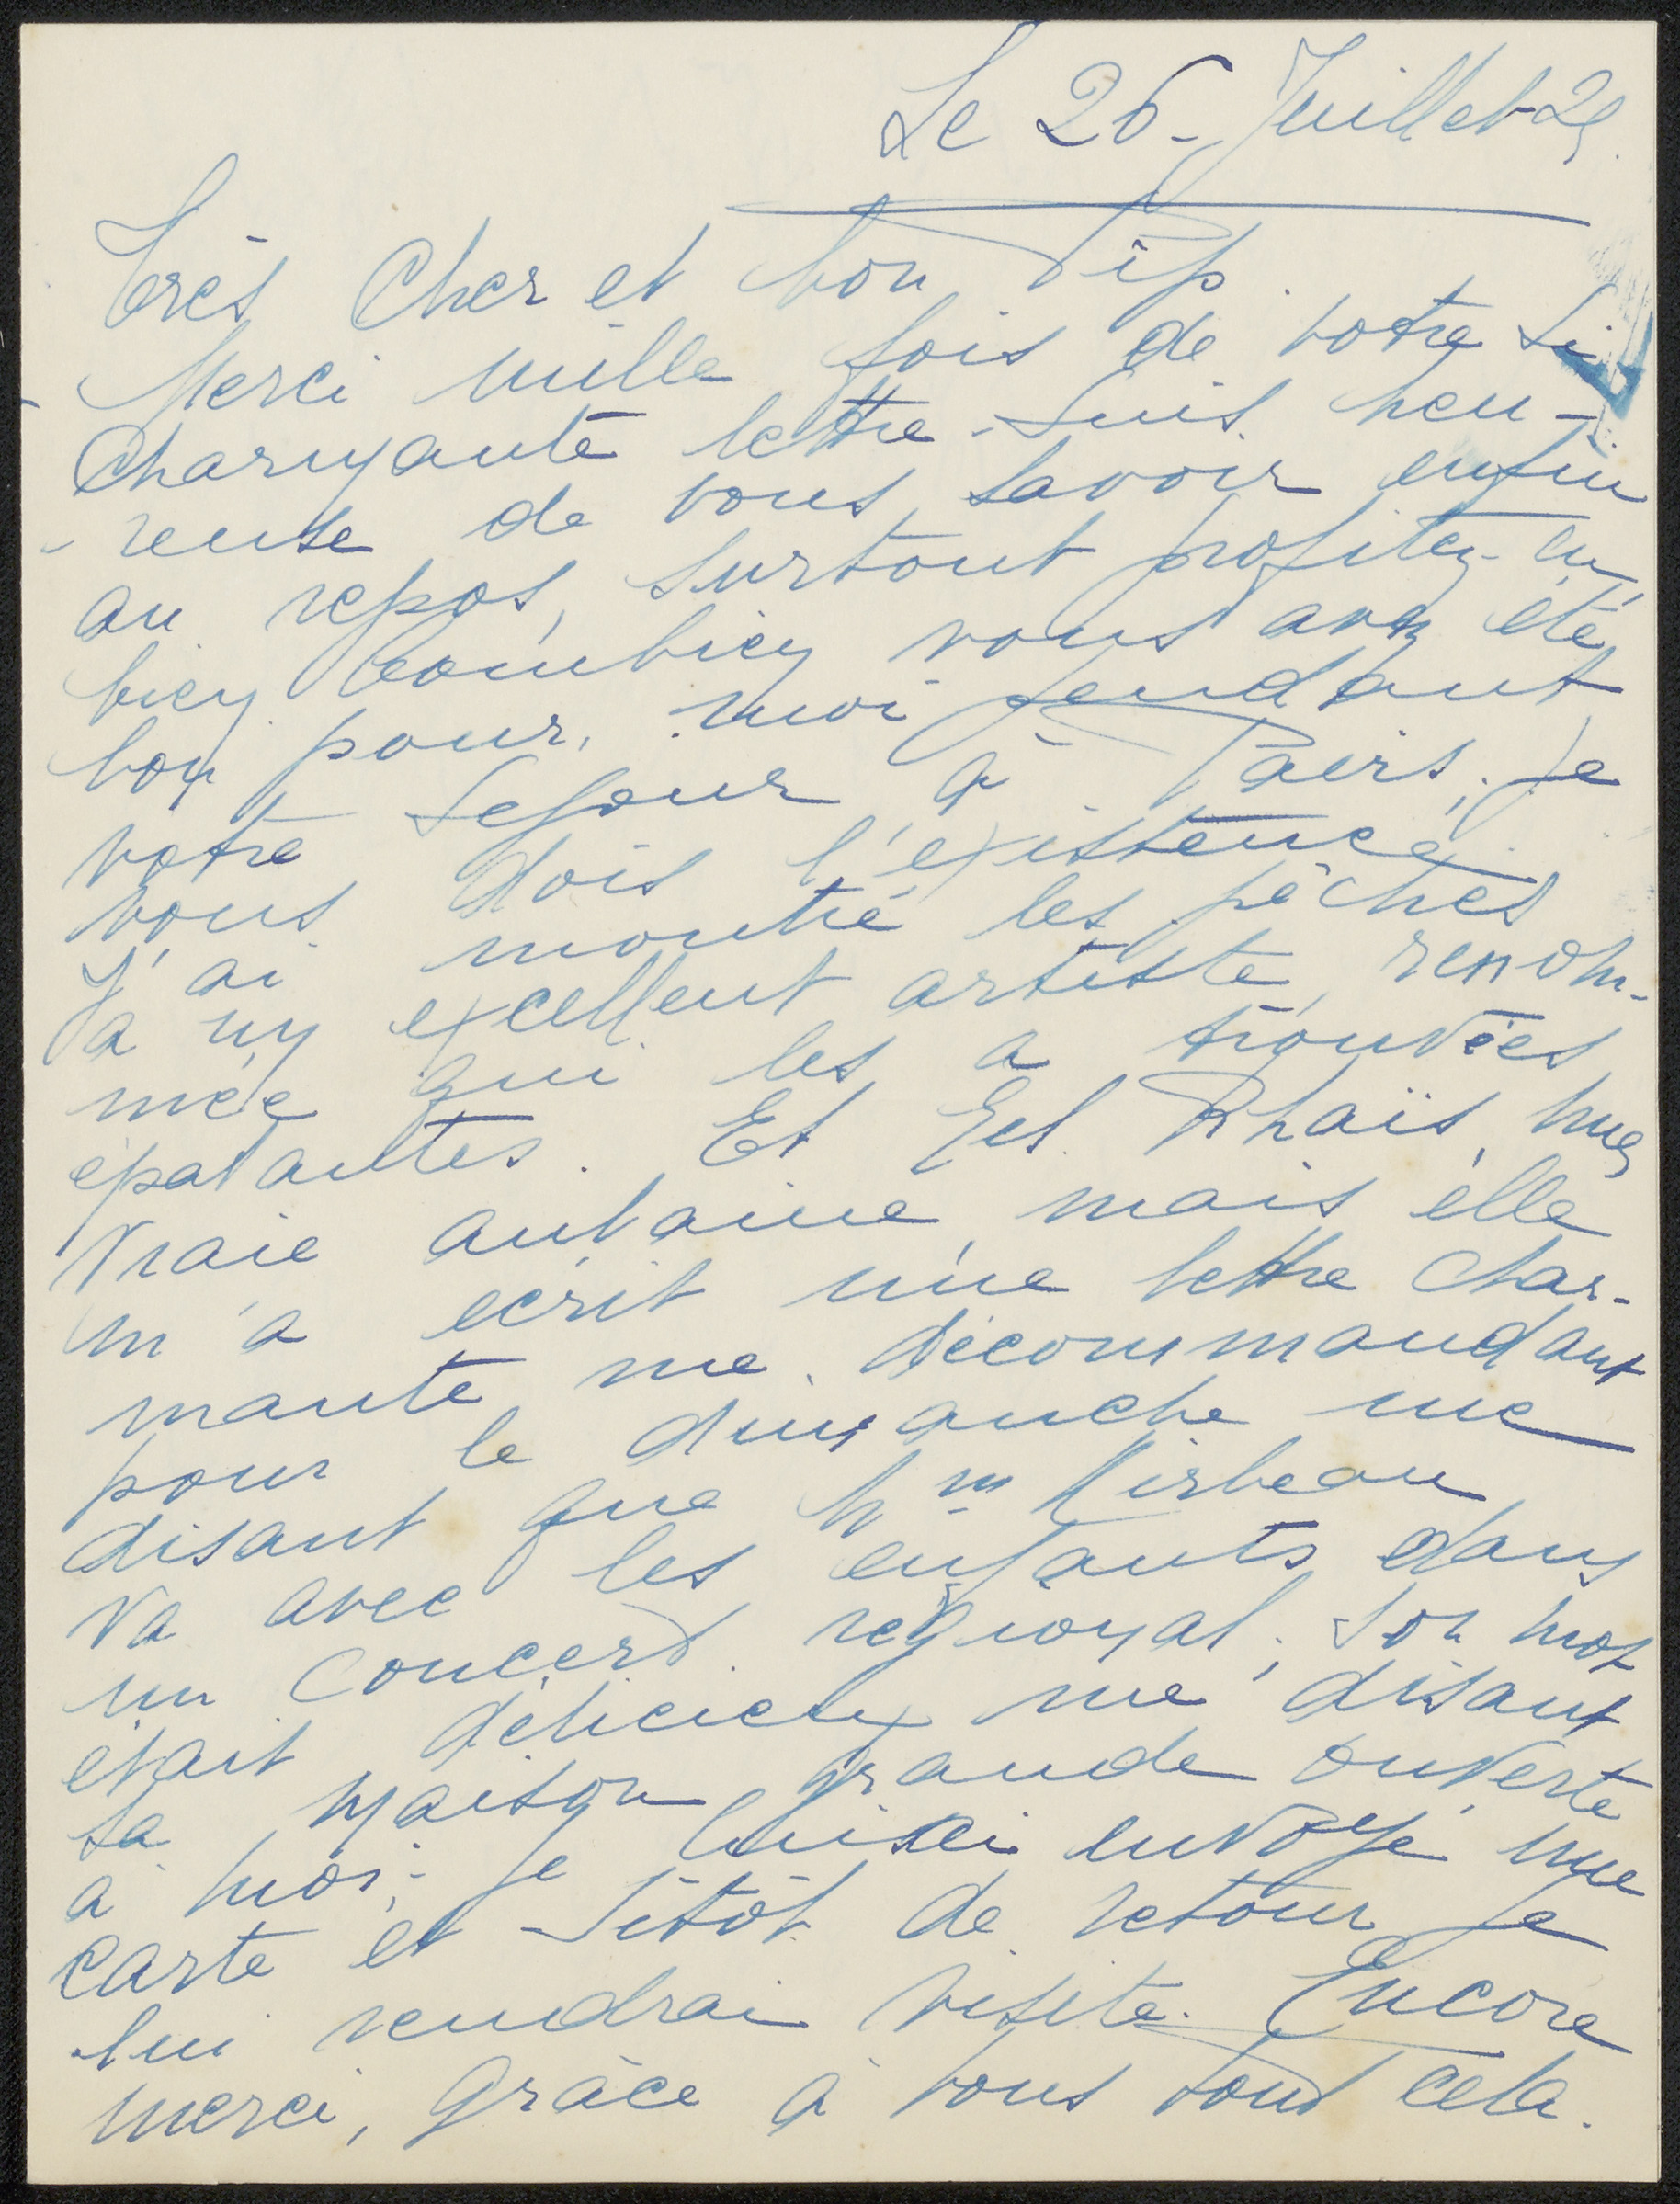 Le 26 - Juillet - 25.
Très Cher et bon Pip.
Merci mille fois de votre si
charmante lettre - Suis heu-
- reuse de vous savoir enfin
au repos, surtout profitez-en
bien. Combien vous avez été
bon pour moi pendant
votre Sejour à Paris. Je
vous dois l'existence.
J'ai montré les pêches
à un excellent artiste, renom-
mée qui les a trouvées
épatantes. Et Rhaïs, une
vraie aubaine, mais elle
m'a écrit une lettre char-
mante me décommandant
pour le dimanche me
disant que Mirbeau
va avec les enfants dans
un concert regional, son mot
était délicieux me disant
sa maison grande ouverte
à moi; je lui ai envoyé une
carte et Sitôt de retour je
lui rendrai visite. Encore
merci, grâce à vous tout cela.